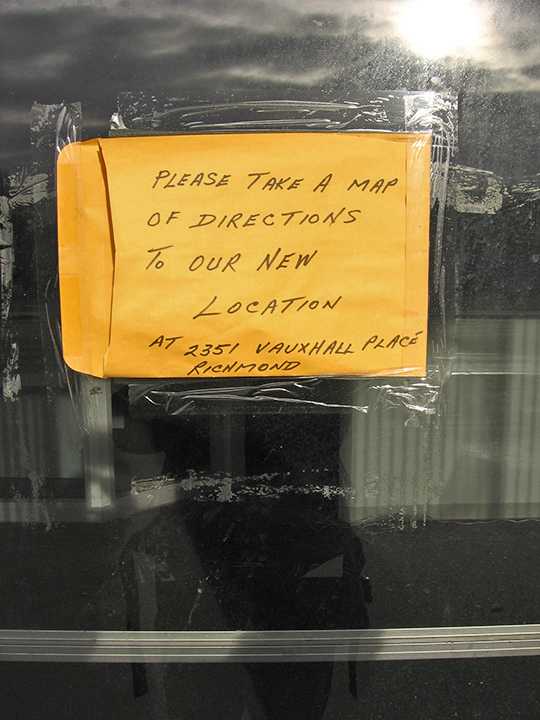 PLEASE TAKE A MAP
OF DIRECTIONS
To OUR NEW
LOCATION
AT 2351 VAUXHALL PLACE
RICHMOND